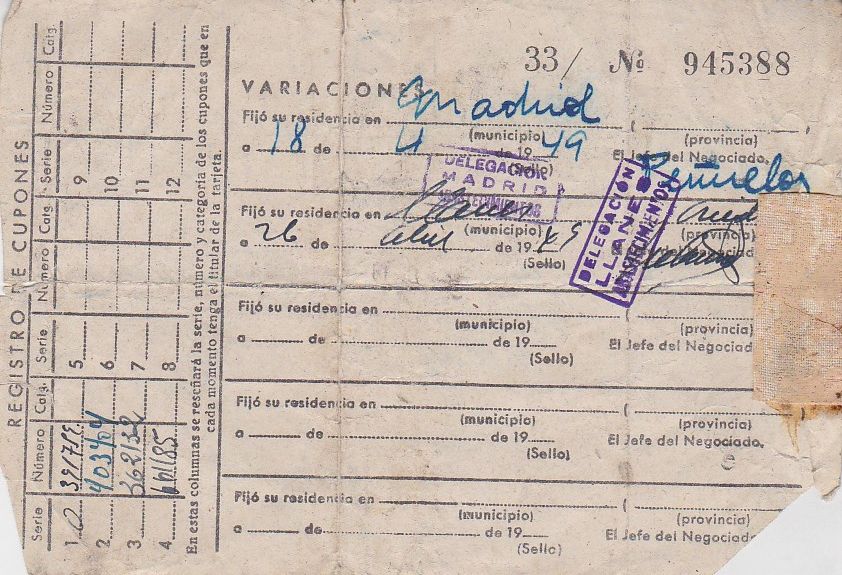 REGISTRO DE CUPONES
Serie Número Catg. Serie Número Catg. Serie Número Catg.
1 5 9
2 40344 6 10
3 362132 7 11
4 661185 8 12
En estas columnas se reseñará la serie, número y categoría de los cupones que en
cada momento tenga el titular de la tarjeta.
33/ Nº 945388
VARIACIONES
Fijó su residencia en Madrid
(municipio) (provincia)
a 18 de 4 de 1949 El Jefe del Negociado,
(Sello) Peñuelas
DELEGACION
MADRID
DELEGACIÓN
LLANES
ABASTECIMIENTOS
Fijó su residencia en Llanes
(municipio) (provincia)
a 26 de abril de 1949 El Jefe del Negociad
(Sello)
Fijó su residencia en
(municipio) (provincia)
a de de 19 El Jefe del Negociad
(Sello)
Fijó su residencia en
(municipio) (provincia)
a de de 19 El Jefe del Negociado,
(Sello)
Fijó su residencia en
(municipio) (provincia)
a de de 19 El Jefe del Negociado
(Sello)